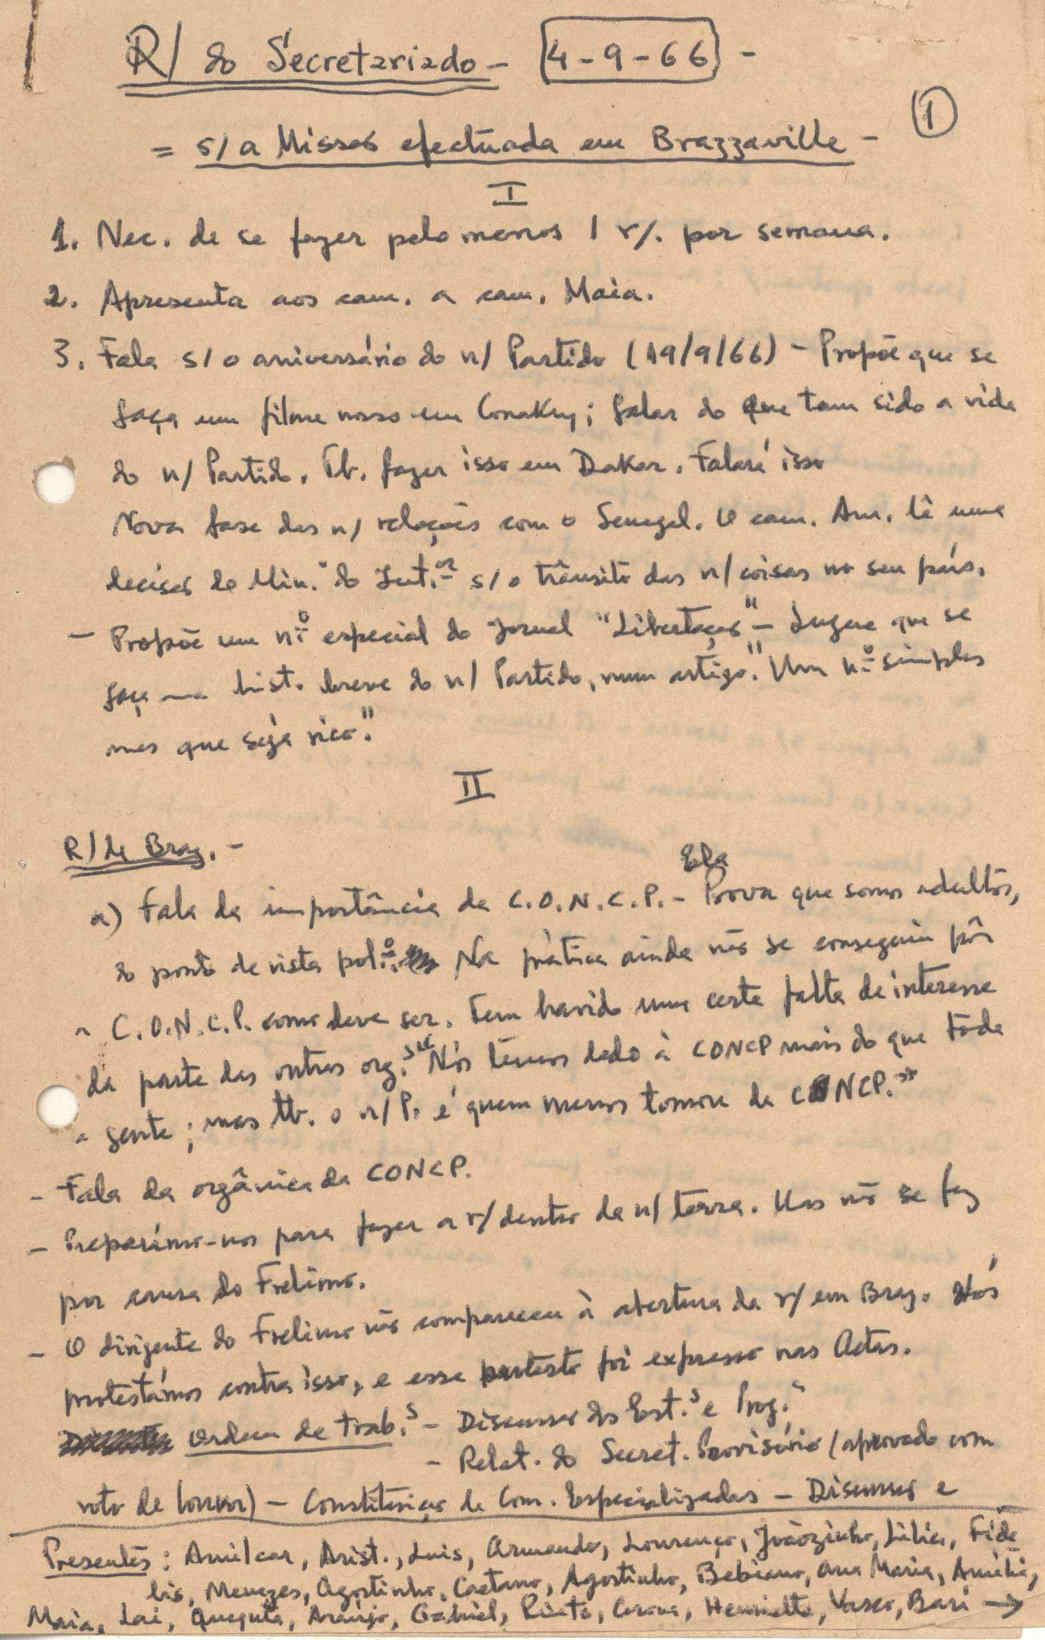 R/ do Secretariado - 4-9-66 -
①
= s/ a Missão efectuada em Brazzaville -
I
1. Nec. de se fazer pelo menos 1 r/. por semana.
2. Apresenta aos cam. a cam. Maia.
3. Fala s/ o aniversário do n/ Partido (19/9/66) - Propõe que se
faça um filme nosso em Conakry; falar do que tem sido a vida
do n/ Partido. Tb. fazer isso em Dakar. Falará isso
Nova fase das n/ relações com o Senegal. O cam. Am. lê uma
decisão do Min.º do Int.or s/ o trânsito das n/ coisas no seu país.
- Propõe um nº especial do Jornal "Libertação" - Sugere que se
faça uma hist. breve do n/ Partido, num artigo. "Um nº simples
mas que seja rico".
II
R/ de Braz. -
Ela
a) Fala da importância da C.O.N.C.P. - Prova que somos adultos,
do ponto de vista pol.º. Na prática ainda não se conseguiu pôr
a C.O.N.C.P. como deve ser. Tem havido uma certa falta de interesse
da parte das outras org.s "Nós temos dado à CONCP mais do que toda
a gente; mas tb. o n/ P. é quem menos tomou da CONCP."
- Fala da orgânica da CONCP.
- Preparámo-nos para fazer a r/ dentro da n/ terra. Mas não se fez
por causa do Frelimo.
- O dirigente do Frelimo não compareceu à abertura da r/ em Braz. Nós
protestámos contra isso, e esse protesto foi expresso nas Actas.
Ordem de trab.s - Discursos dos Est.s e
- Relat. do Secret. Provisório (aprovado com
voto de louvor) - Constituição de Com. Especializadas - Discursos e
Presentes: Amílcar, Arist., Luis, Armando, Lourenço, Joãozinho, Lilica, Fidé
lis, Menezes, Agostinho, Caetano, Agostinho, Bebiano, Ana Maria, Amélia,
Maia, Lai, Quequta, Araújo, Gabriel, Pinto, Henriette, Vasco, Bari →